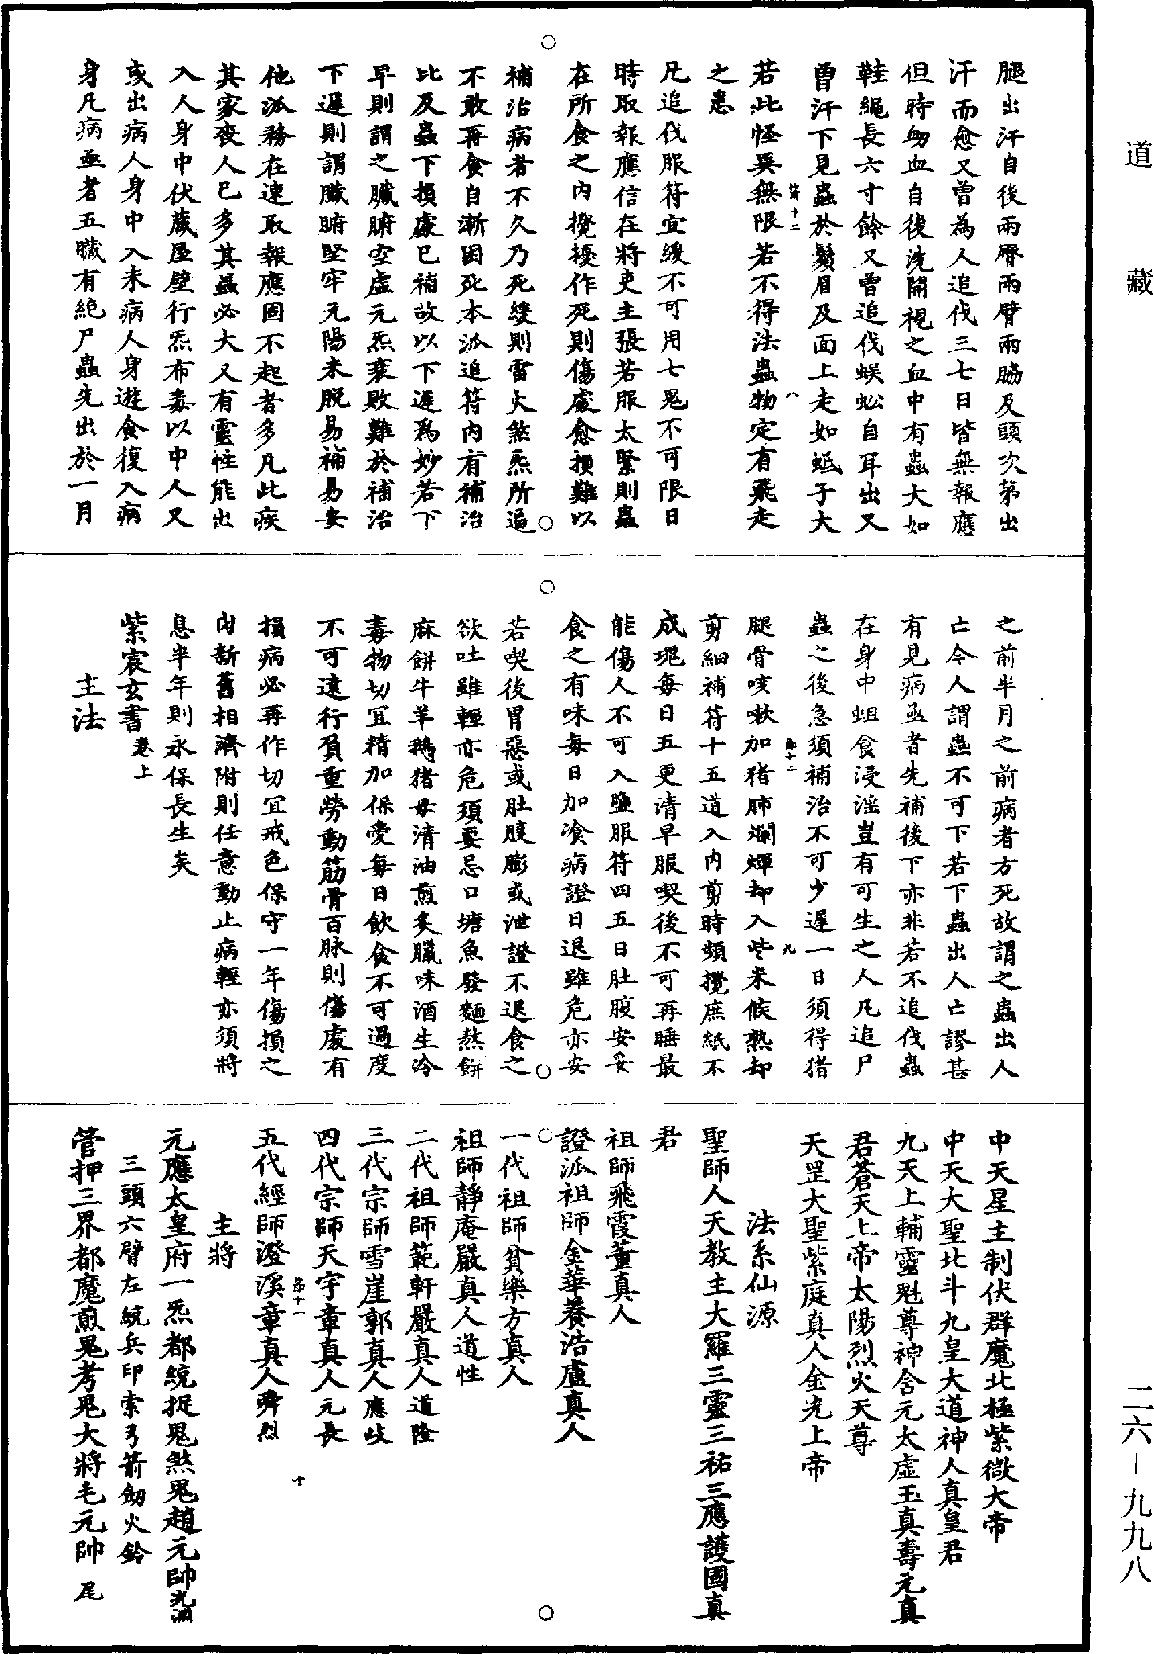 道藏
二六-九九八
腿出汗自後兩脣兩臂兩脇及頭次第出
汗而愈又曾為人追伐三七日皆無報應
但時衂血自後洗開視之血中有蟲大如
鞋繩長六寸餘又曾追伐蜈蚣自耳出又
曾汗下見蟲於鬚眉及面上走如蚳子大
若此怪異無限若不得法蟲物定有飛走
之患
凡追伐服符宜緩不可用七鬼不可限日
時取報應信在將吏主張若服太緊則蟲
在所食之内攪擾作死則傷處愈損難以
補治病者不久乃死緩則雷火煞炁所逼
不敢再食自漸困死本派追符内有補治
比及蟲下損處已補故以下遲為妙若下
早則謂之臟腑空虛元炁衰敗難於補治
下遲則謂臟腑堅牢元陽未脱易補易安
他派務在速取報應固不起者多凡此疾
其家喪人已多其蟲必大又有靈性能出
入人身中伏藏屋壁行炁布毒以中人又
或出病人身中入未病人身遊食復入病
身凡病亟者五臟有絶尸蟲先出於一月
之前半月之前病者方死故謂之蟲出人
亡今人謂蟲不可下若下蟲出人亡謬甚
有見病亟者先補後下亦非若不追伐蟲
在身中蛆食浸滛豈有可生之人凡追尸
蟲之後急須補治不可少遲一日須得猪
腿骨咳嗽加猪肺爛燀却入些米候熟却
剪細補符十五道入内剪時頻攪庶紙不
成塊每日五更清早服喫後不可再睡最
能傷人不可入鹽服符四五日肚腹安妥
食之有味每日加飡病證日退雖危亦安
若喫後胃惡或肚膨或泄證不退食之
欲吐雖輕亦危須要忌口塘魚發麵熬餅
麻餅牛羊鵝猪母清油煎炙膩味酒生冷
毒物切宜精加保愛每日飲食不可過度
不可遠行負重勞動筋骨百脉則傷處有
損病必再作切宜戒色保守一年傷損之
内新舊相濟附則任意動止病輕亦須將
息半年則永保長生矣
紫宸玄書 卷上
主法
中天星主制伏群魔北極紫微大帝
中天大聖北斗九皇大道神人真皇君
九天上輔靈尊神含元太虛玉真壽元真
君蒼天上帝太陽烈火天尊
天罡大聖紫庭真人金光上帝
法系仙源
聖師人天教主大羅三靈三祐三應護國真
君
祖師飛霞董真人
證派祖師金華養浩盧真人
一代祖師貧樂方真人
祖師靜庵嚴真人道性
二代祖師範軒嚴真人道隆
三代宗師雪崖郭真人應岐
四代宗師天宇章真人元長
五代經師澄溪章真人舜烈
主將
元應太皇府一炁都統捉鬼煞鬼趙元帥
三頭六臂左統兵印索弓箭劒火鈴
管押三界都魔煎鬼考鬼大將毛元帥 尾